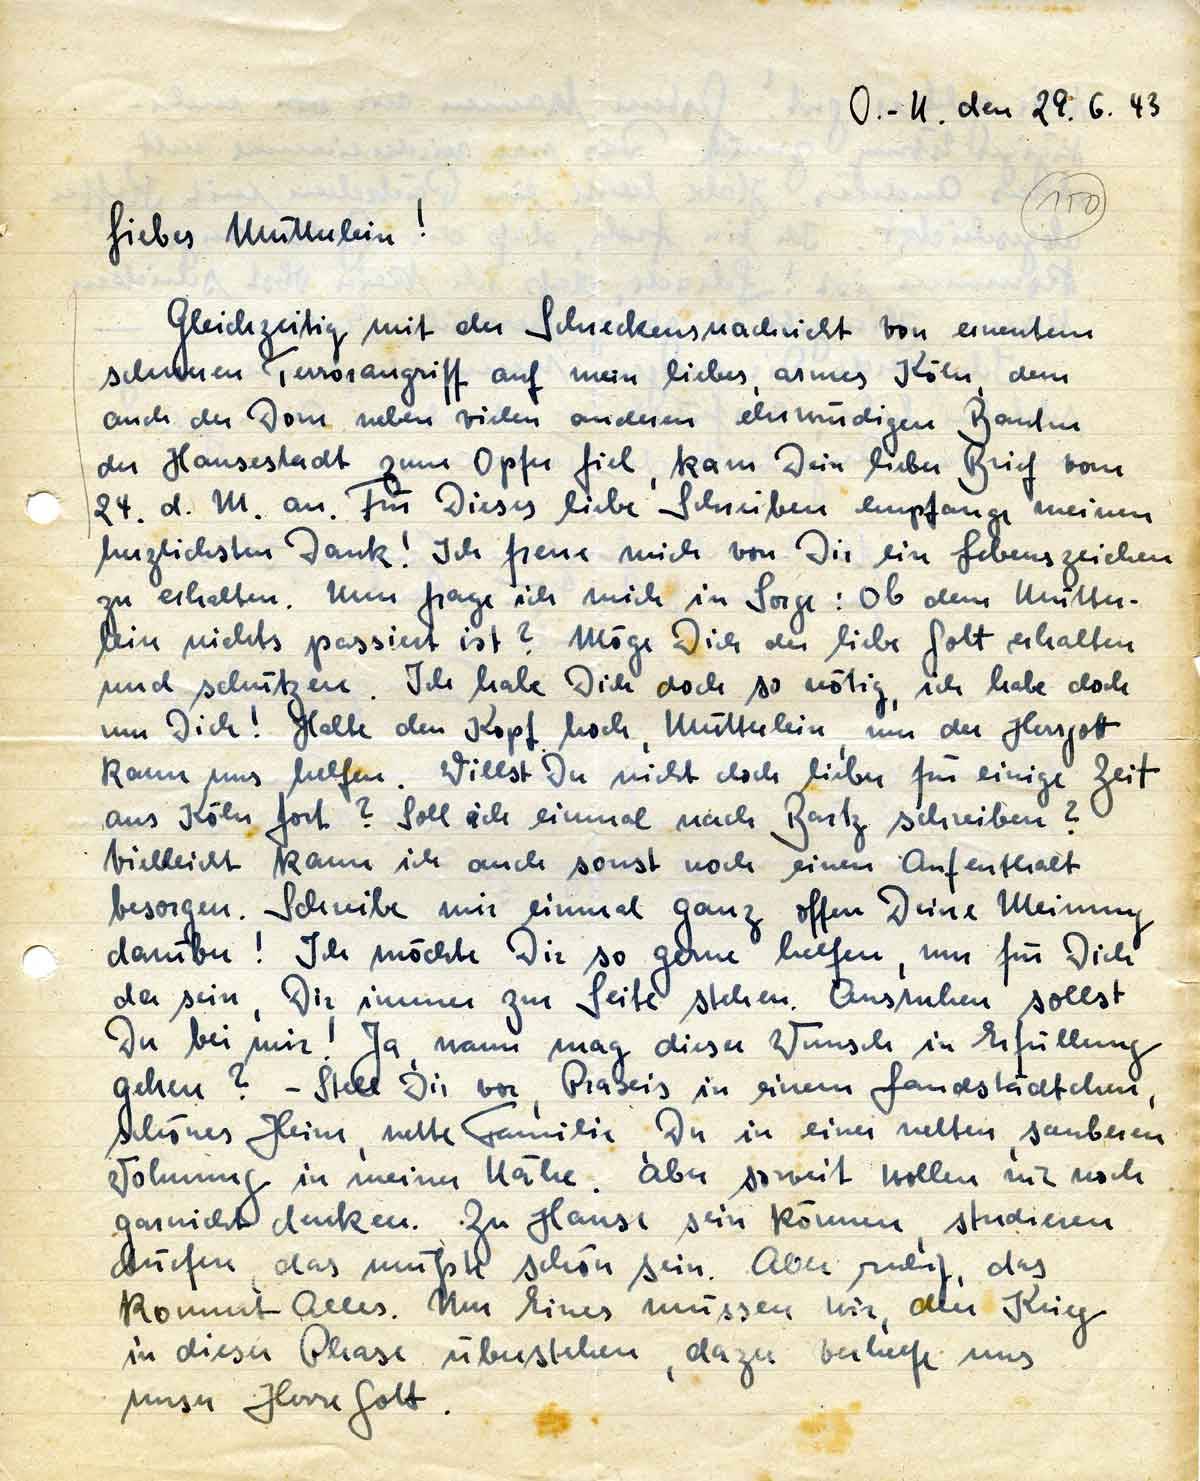 O.-U. den 29. 6. 43
150
Liebes Mütterlein!
Gleichzeitig mit der Schreckensnachricht von erneutem
schweren Terrorangriff auf mein liebes, armes Köln, dem
auch der Dom neben vielen anderen ehrwürdigen Bauten
der Hansestadt zum Opfer fiel, kam Dein lieber Brief vom
24. d. M. an. Für Dieses liebe Schreiben empfange meinen
herzlichsten Dank! Ich freue mich von Dir ein Lebenszeichen
zu erhalten. Nun frage ich mich in Sorge: Ob dem Mütter-
lein nichts passiert ist? Möge Dich der liebe Gott erhalten
und schützen. Ich habe Dich doch so nötig, ich habe doch
nur Dich! Halte den Kopf hoch, Mütterlein, nur der Herrgott
kann uns helfen. Willst Du nicht doch lieber für einige Zeit
aus Köln fort? Soll ich einmal nach Bartz schreiben?
Vielleicht kann ich auch sonst noch einen Aufenthalt
besorgen. Schreibe mir einmal ganz offen Deine Meinung
darüber! Ich möchte Dir so gerne helfen, nur für Dich
da sein, Dir immer zur Seite stehen. Ausruhen sollst
Du bei mir! Ja, wann mag dieser Wunsch in Erfüllung
gehen? – Stell Dir vor, Praxis in einem Landstädtchen,
schönes Heim, nette Familie Du in einer netten, sauberen
Wohnung in meiner Nähe. Aber soweit wollen wir noch
garnicht denken. Zu Hause sein können, studieren
dürfen, das müßte schön sein. Aber ruhig, das
kommt Alles. Nur Eines müssen wir, den Krieg
in dieser Phase überstehen, dazu verhelfe uns
unser Herre Gott.